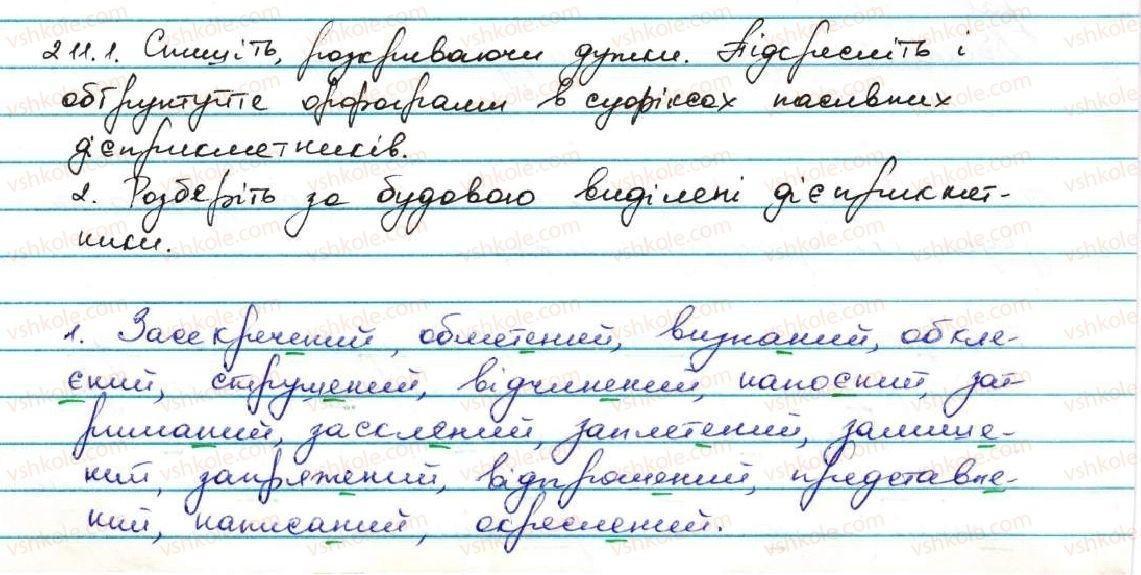 211.1. Спишіть, розкриваючи дужки. Підкресліть і
обґрунтуйте орфограми в суфіксах пасивних
дієприкметників.
2. Розберіть за будовою виділені дієприкмет-
ники.
1. Засекречений, обметений, визнаний, обкле-
єний, струшений, відчинений, напоєний, зат-
риманий, засклений, заплетений, замише-
ний, запряжений, відпрошений, представле-
ний, написаний, окреслений.
vshkole.com